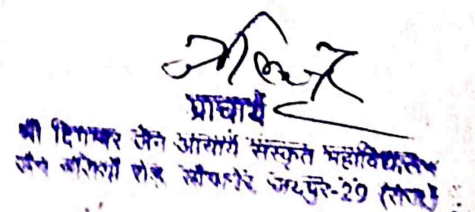 प्राचार्य
श्री दिगम्बर जैन आचार्य संस्कृत महाविद्यालय
जैन नसियाँ रोड सांगानेर जयपुर-29 (राज.)